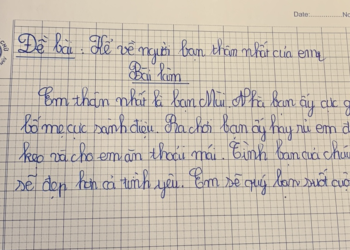 Date: No
Đề bài: Kể về người bạn thân nhất của em
Bài làm
Em thân nhất là bạn Mùi. Nhà bạn ấy cực g
bố mẹ cực sành điệu. Ra chơi bạn ấy hay rủ em đ
kẹo và cho em ăn thoải mái. Tình bạn của chú
sẽ đẹp hơn cả tình yêu. Em sẽ quý bạn suốt cuộ